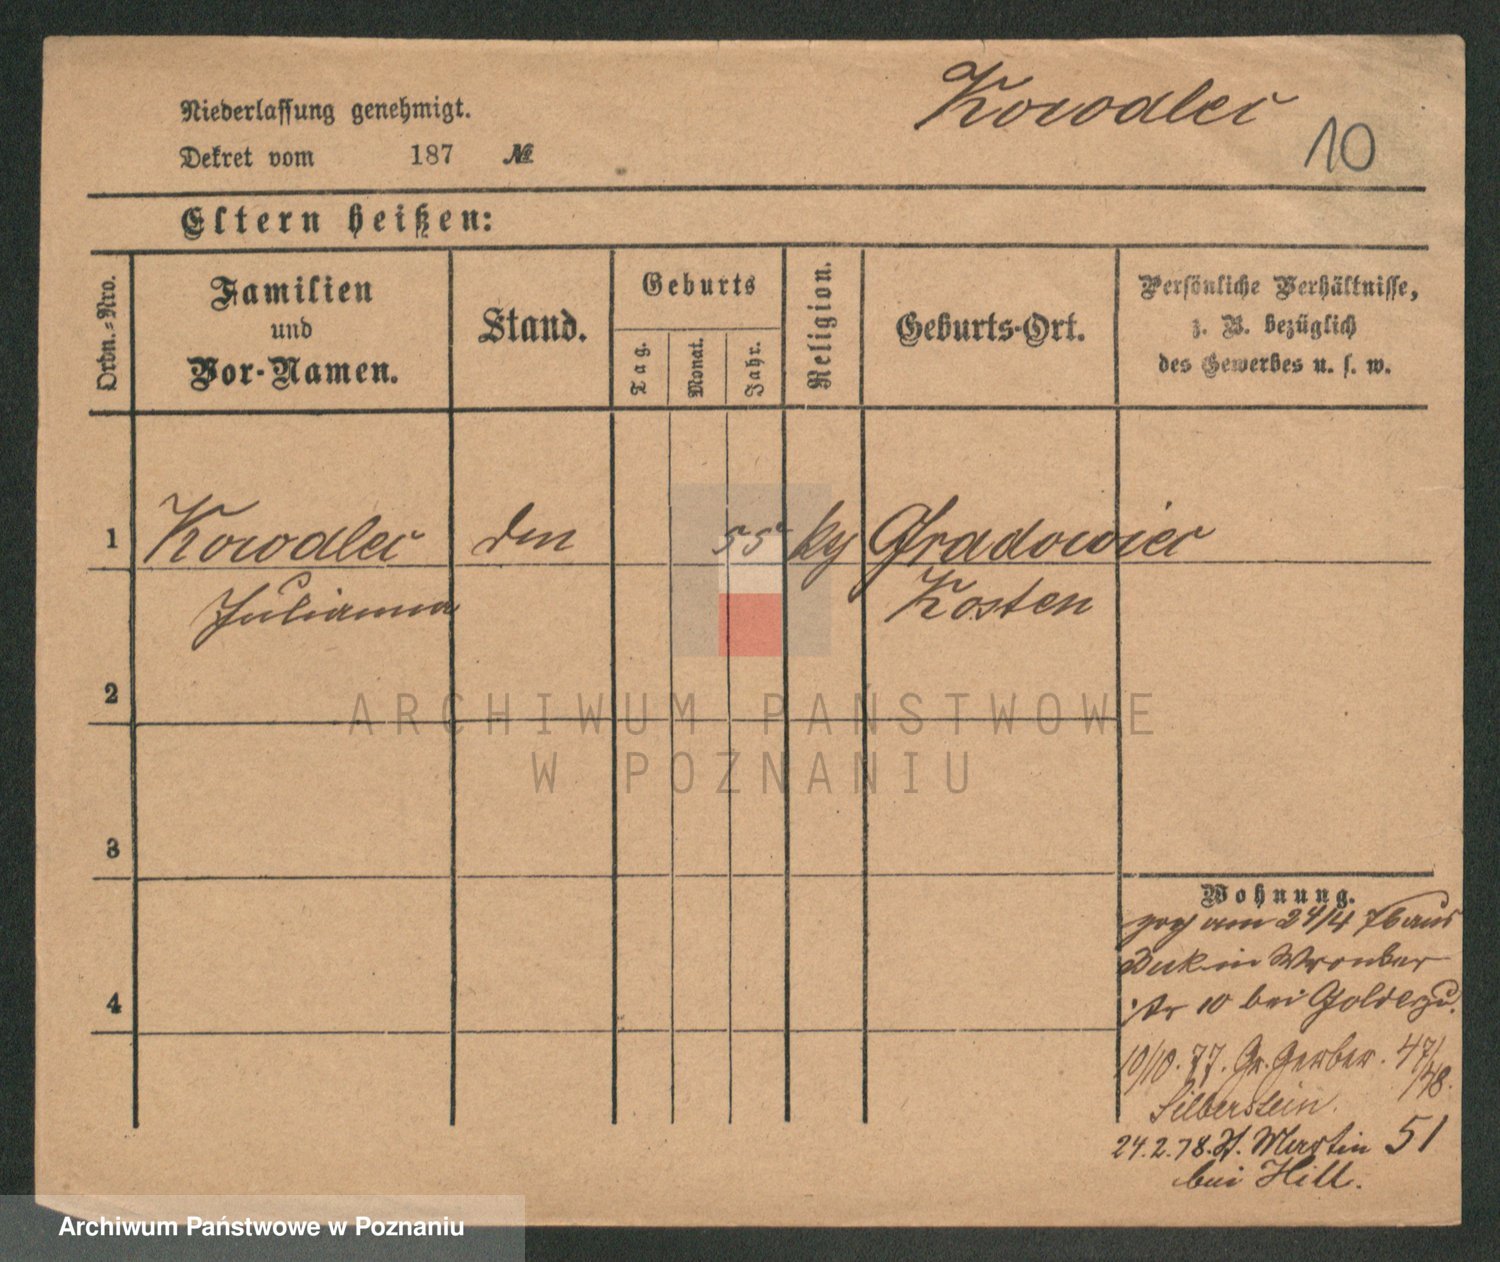 Niederlassung genehmigt.
Kowodler
10
Dekret vom 187 №
Eltern heißen:
Ordn.=Nro.
Familien
und
Vor-Namen.
Stand.
Geburts
Tag.
Monat.
Jahr.
Religion.
Geburts-Ort.
Persönliche Verhältnisse,
z. B. bezüglich
des Gewerbes u. s. w.
1 Kowodler 55 Gradowiec
Julianna Kosten
2
3
4
Wohnung.
am 24/4 76 aus
in Wronker
10 bei
10/10. 77. Gr. Gerber. 47/48.
Silberstein.
24.2.78. St. Martin 51
bei Hill.
ARCHIWUM PAŃSTWOWE
W POZNANIU
Archiwum Państwowe w Poznaniu